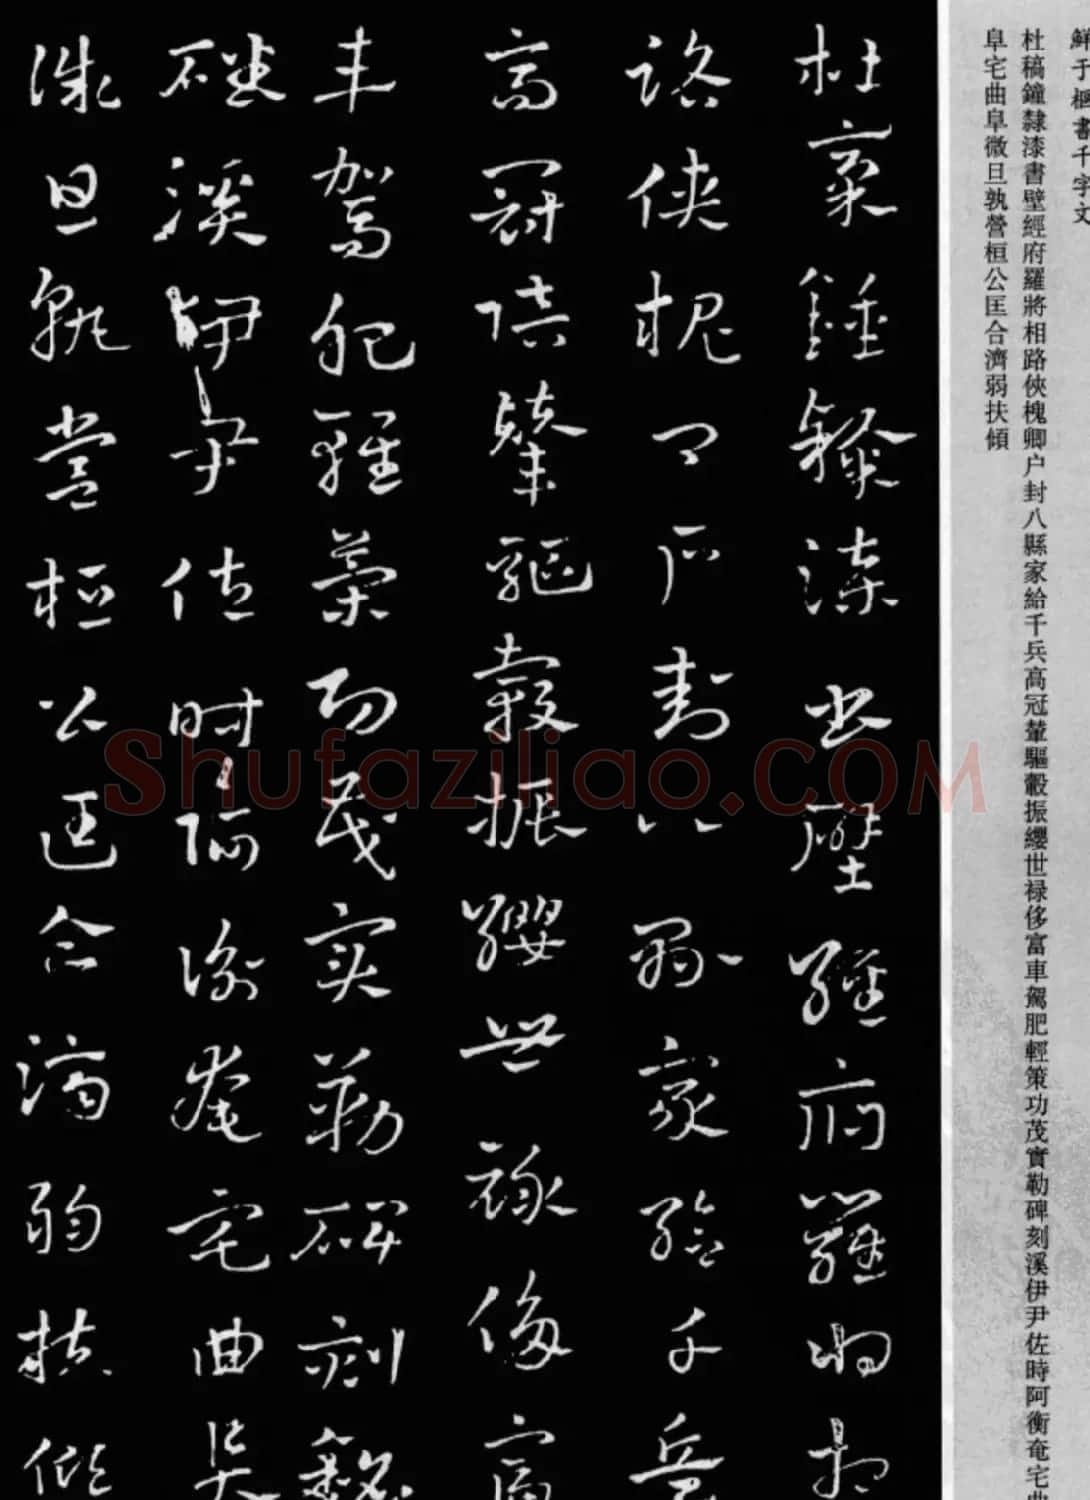 鮮于樞書千字文
杜稿鐘隸漆書壁經府羅將相路俠槐卿户封八縣家給千兵高冠輦驅轂振纓世禄侈富車駕肥輕策功茂實勒碑刻溪伊尹佐時阿衡奄宅曲
阜宅曲阜微旦孰營桓公匡合濟弱扶傾
杜稾鍾隸漆書壁經府羅將相
路俠槐卿户封八縣家給千兵
高冠陪輦驅轂振纓世祿侈富
車駕肥輕策功茂實勒碑刻銘
磻溪伊尹佐時阿衡奄宅曲阜
微旦孰營桓公匡合濟弱扶傾
Shufaziliao.COM